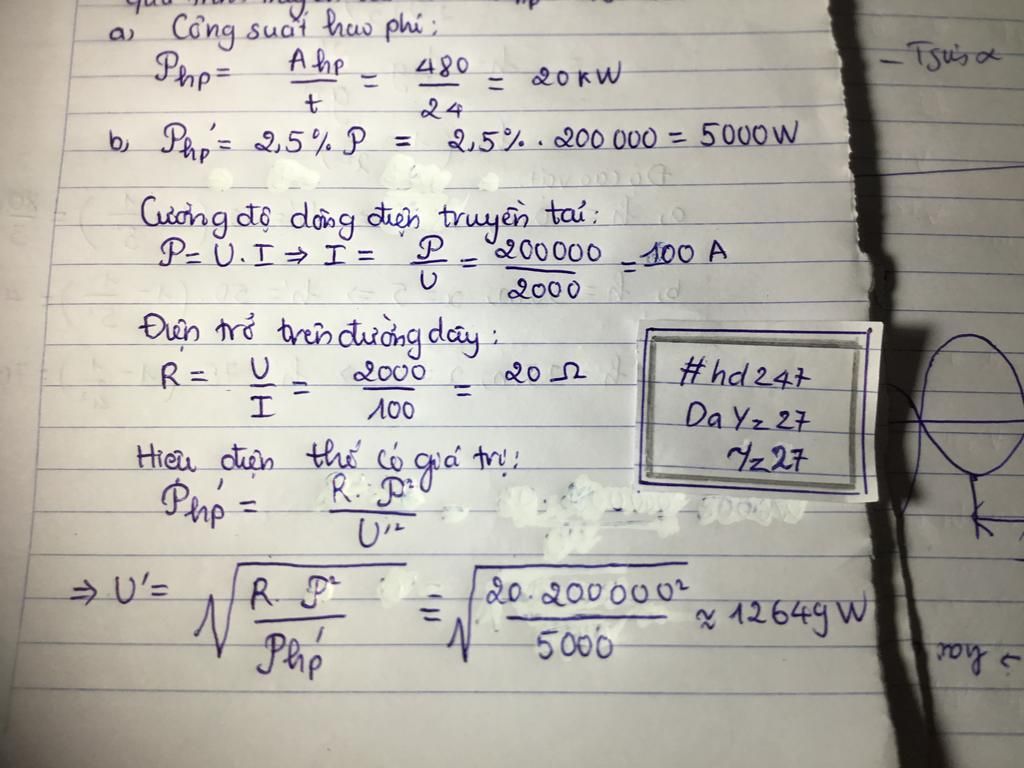 a, Công suất hao phí:
Php = Ahp / t = 480 / 24 = 20 kW
b, Php' = 2,5% P = 2,5% . 200 000 = 5000W
Cường độ dòng điện truyền tải:
P = U . I ⇒ I = P / U = 200000 / 2000 = 100 A
Điện trở trên đường dây:
R = U / I = 2000 / 100 = 20 Ω
Hiệu điện thế có giá trị:
Php' = R . P² / U'²
⇒ U' = √(R . P² / Php') = √(20 . 200000² / 5000) ≈ 12649 W
#hd247
DaYz27
Yz27
- Tsinα